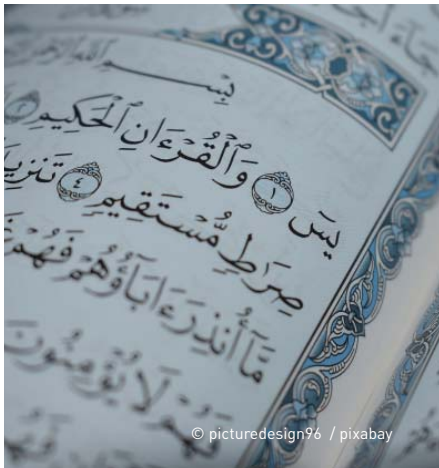 جَآءَ
بِسْمِ ٱللَّهِ ٱلرَّحْمَٰنِ
يسٓ ١ وَٱلْقُرْءَانِ ٱلْحَكِيمِ ٢
صِرَٰطٍ مُّسْتَقِيمٍ ٤ تَنزِيلَ
مَّآ أُنذِرَ ءَابَآؤُهُمْ فَهُمْ
فَهُمْ لَا يُؤْمِنُونَ
© picturedesign96 / pixabay